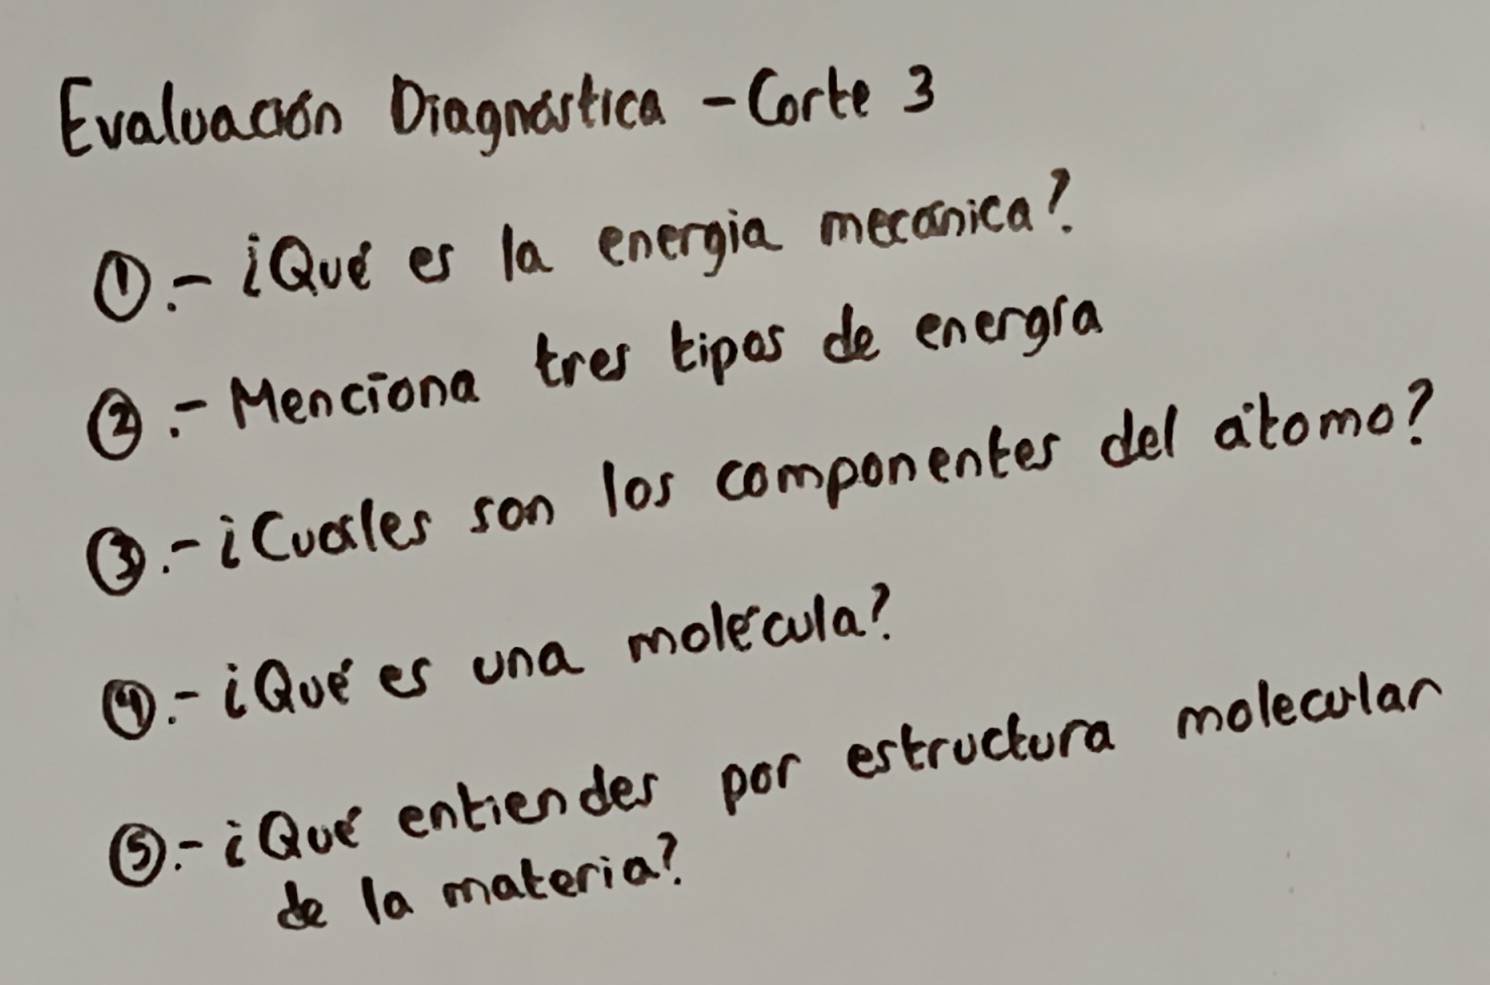 Evaluación Diagnóstica - Corte 3
①.- ¿Qué es la energia mecánica?
②.- Menciona tres tipos de energía
③.- ¿Cuáles son los componentes del átomo?
④.- ¿Qué es una molécula?
⑤.- ¿Qué entiendes por estructura molecular
de la materia?